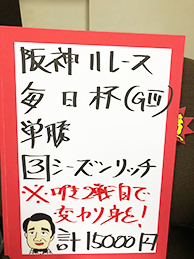 阪神11レース
毎日杯(GⅢ)
単勝
3シーズンリッチ
※唯2戦目で
変わり身を!
計15000円